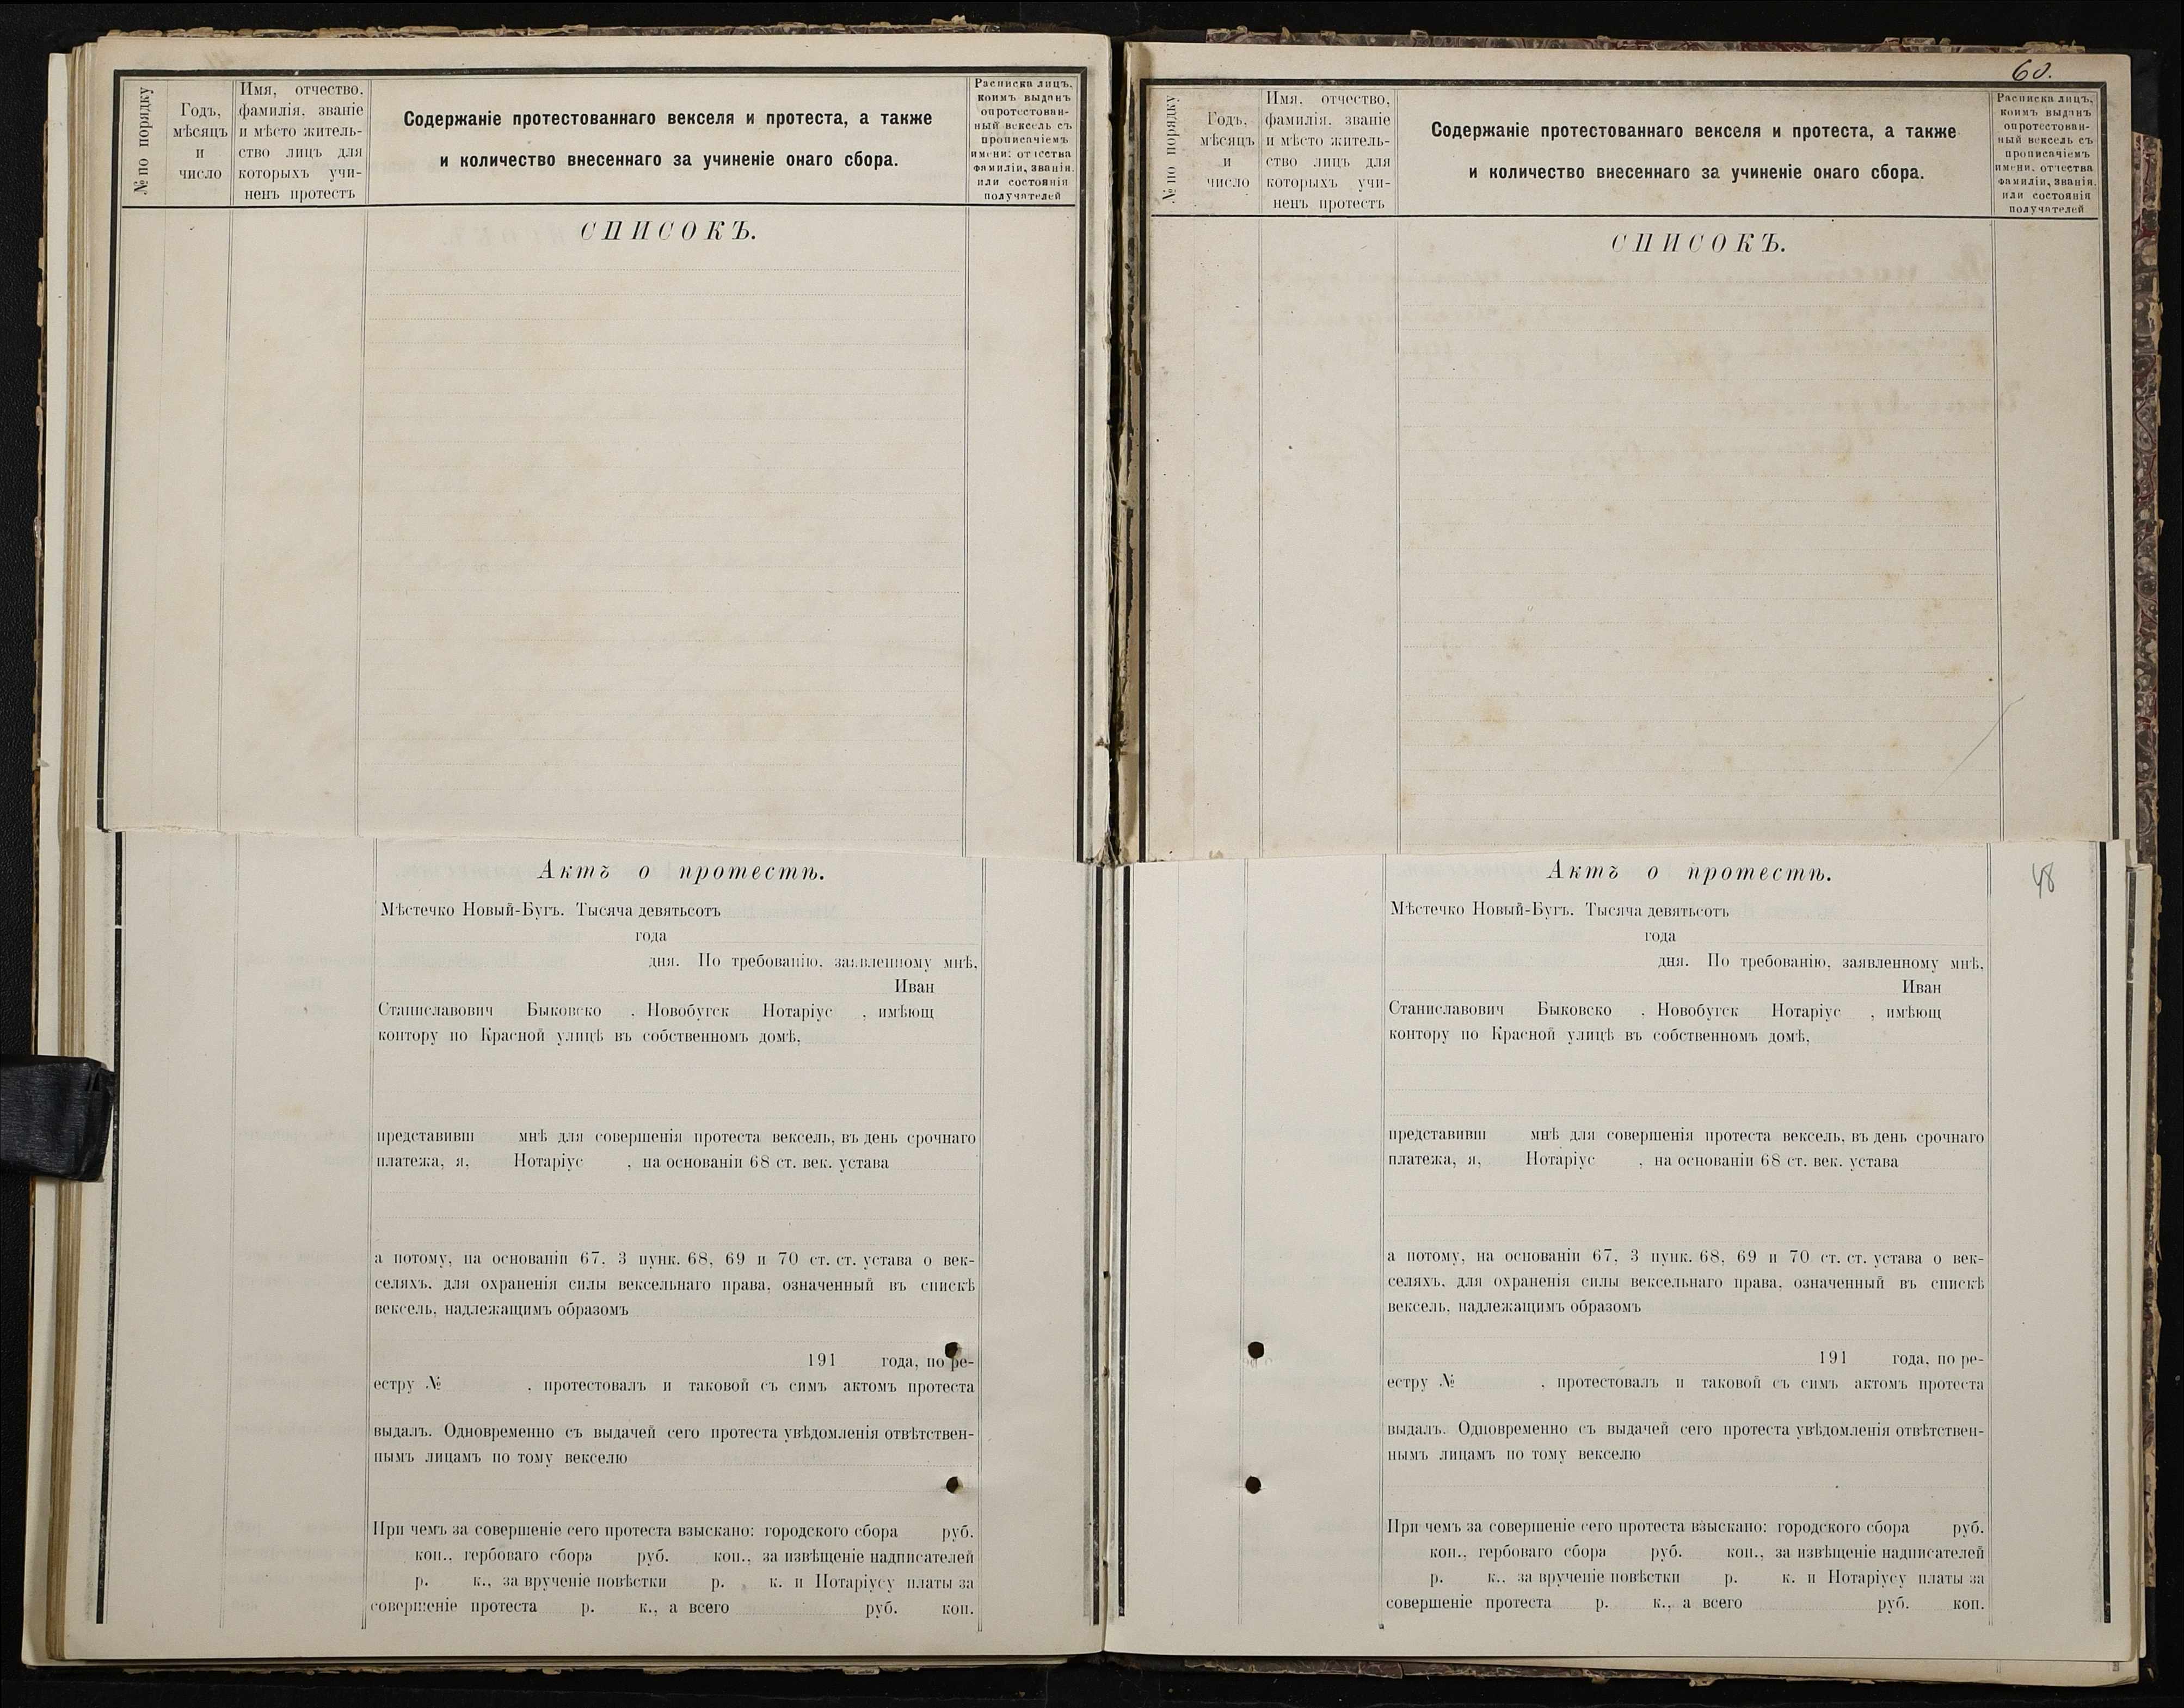 № по порядку
Годъ,
мѣсяцъ
и
число
Имя, отчество,
фамилія, званіе
и мѣсто житель-
ство лицъ для
которыхъ учи-
ненъ протестъ
Содержаніе протестованнаго векселя и протеста, а также
и количество внесеннаго за учиненіе онаго сбора.
Расписка лицъ,
коимъ выданъ
опротестован-
ный вексель съ
прописаніемъ
имени, отчества
фамиліи, званія,
или состоянія
получателей
СПИСОКЪ.
Актъ о протестѣ.
Мѣстечко Новый-Бугъ. Тысяча девятьсотъ
года
дня. По требованію, заявленному мнѣ,
Иван
Станиславович Быковско , Новобугск Нотаріус , имѣющ
контору по Красной улицѣ въ собственномъ домѣ,
представивш мнѣ для совершенія протеста вексель, въ день срочнаго
платежа, я, Нотаріус , на основаніи 68 ст. век. устава
а потому, на основаніи 67, 3 пунк. 68, 69 и 70 ст. ст. устава о век-
селяхъ, для охраненія силы вексельнаго права, означенный въ спискѣ
вексель, надлежащимъ образомъ
191 года, по ре-
естру № , протестовалъ и таковой съ симъ актомъ протеста
выдалъ. Одновременно съ выдачей сего протеста увѣдомленія отвѣтствен-
нымъ лицамъ по тому векселю
При чемъ за совершеніе сего протеста взыскано: городского сбора руб.
коп., гербоваго сбора руб. коп., за извѣщеніе надписателей
р. к., за врученіе повѣстки р. к. и Нотаріусу платы за
совершеніе протеста р. к., а всего руб. коп.
60.
№ по порядку
Годъ,
мѣсяцъ
и
число
Имя, отчество,
фамилія, званіе
и мѣсто житель-
ство лицъ для
которыхъ учи-
ненъ протестъ
Содержаніе протестованнаго векселя и протеста, а также
и количество внесеннаго за учиненіе онаго сбора.
Расписка лицъ,
коимъ выданъ
опротестован-
ный вексель съ
прописаніемъ
имени, отчества
фамиліи, званія,
или состоянія
получателей
СПИСОКЪ.
48
Актъ о протестѣ.
Мѣстечко Новый-Бугъ. Тысяча девятьсотъ
года
дня. По требованію, заявленному мнѣ,
Иван
Станиславович Быковско , Новобугск Нотаріус , имѣющ
контору по Красной улицѣ въ собственномъ домѣ,
представивш мнѣ для совершенія протеста вексель, въ день срочнаго
платежа, я, Нотаріус , на основаніи 68 ст. век. устава
а потому, на основаніи 67, 3 пунк. 68, 69 и 70 ст. ст. устава о век-
селяхъ, для охраненія силы вексельнаго права, означенный въ спискѣ
вексель, надлежащимъ образомъ
191 года, по ре-
естру № , протестовалъ и таковой съ симъ актомъ протеста
выдалъ. Одновременно съ выдачей сего протеста увѣдомленія отвѣтствен-
нымъ лицамъ по тому векселю
При чемъ за совершеніе сего протеста взыскано: городского сбора руб.
коп., гербоваго сбора руб. коп., за извѣщеніе надписателей
р. к., за врученіе повѣстки р. к. и Нотаріусу платы за
совершеніе протеста р. к., а всего руб. коп.